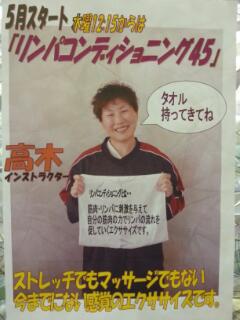 5月スタート 木曜12:15からは
「リンパコンディショニング45」
タオル
持ってきてね
高木
インストラクター
リンパコンディショニングとは・・
筋肉・リンパに刺激を与えて
自分の筋肉の力でリンパの流れを
促していくエクササイズです。
ストレッチでもマッサージでもない
今までにない感覚のエクササイズです。